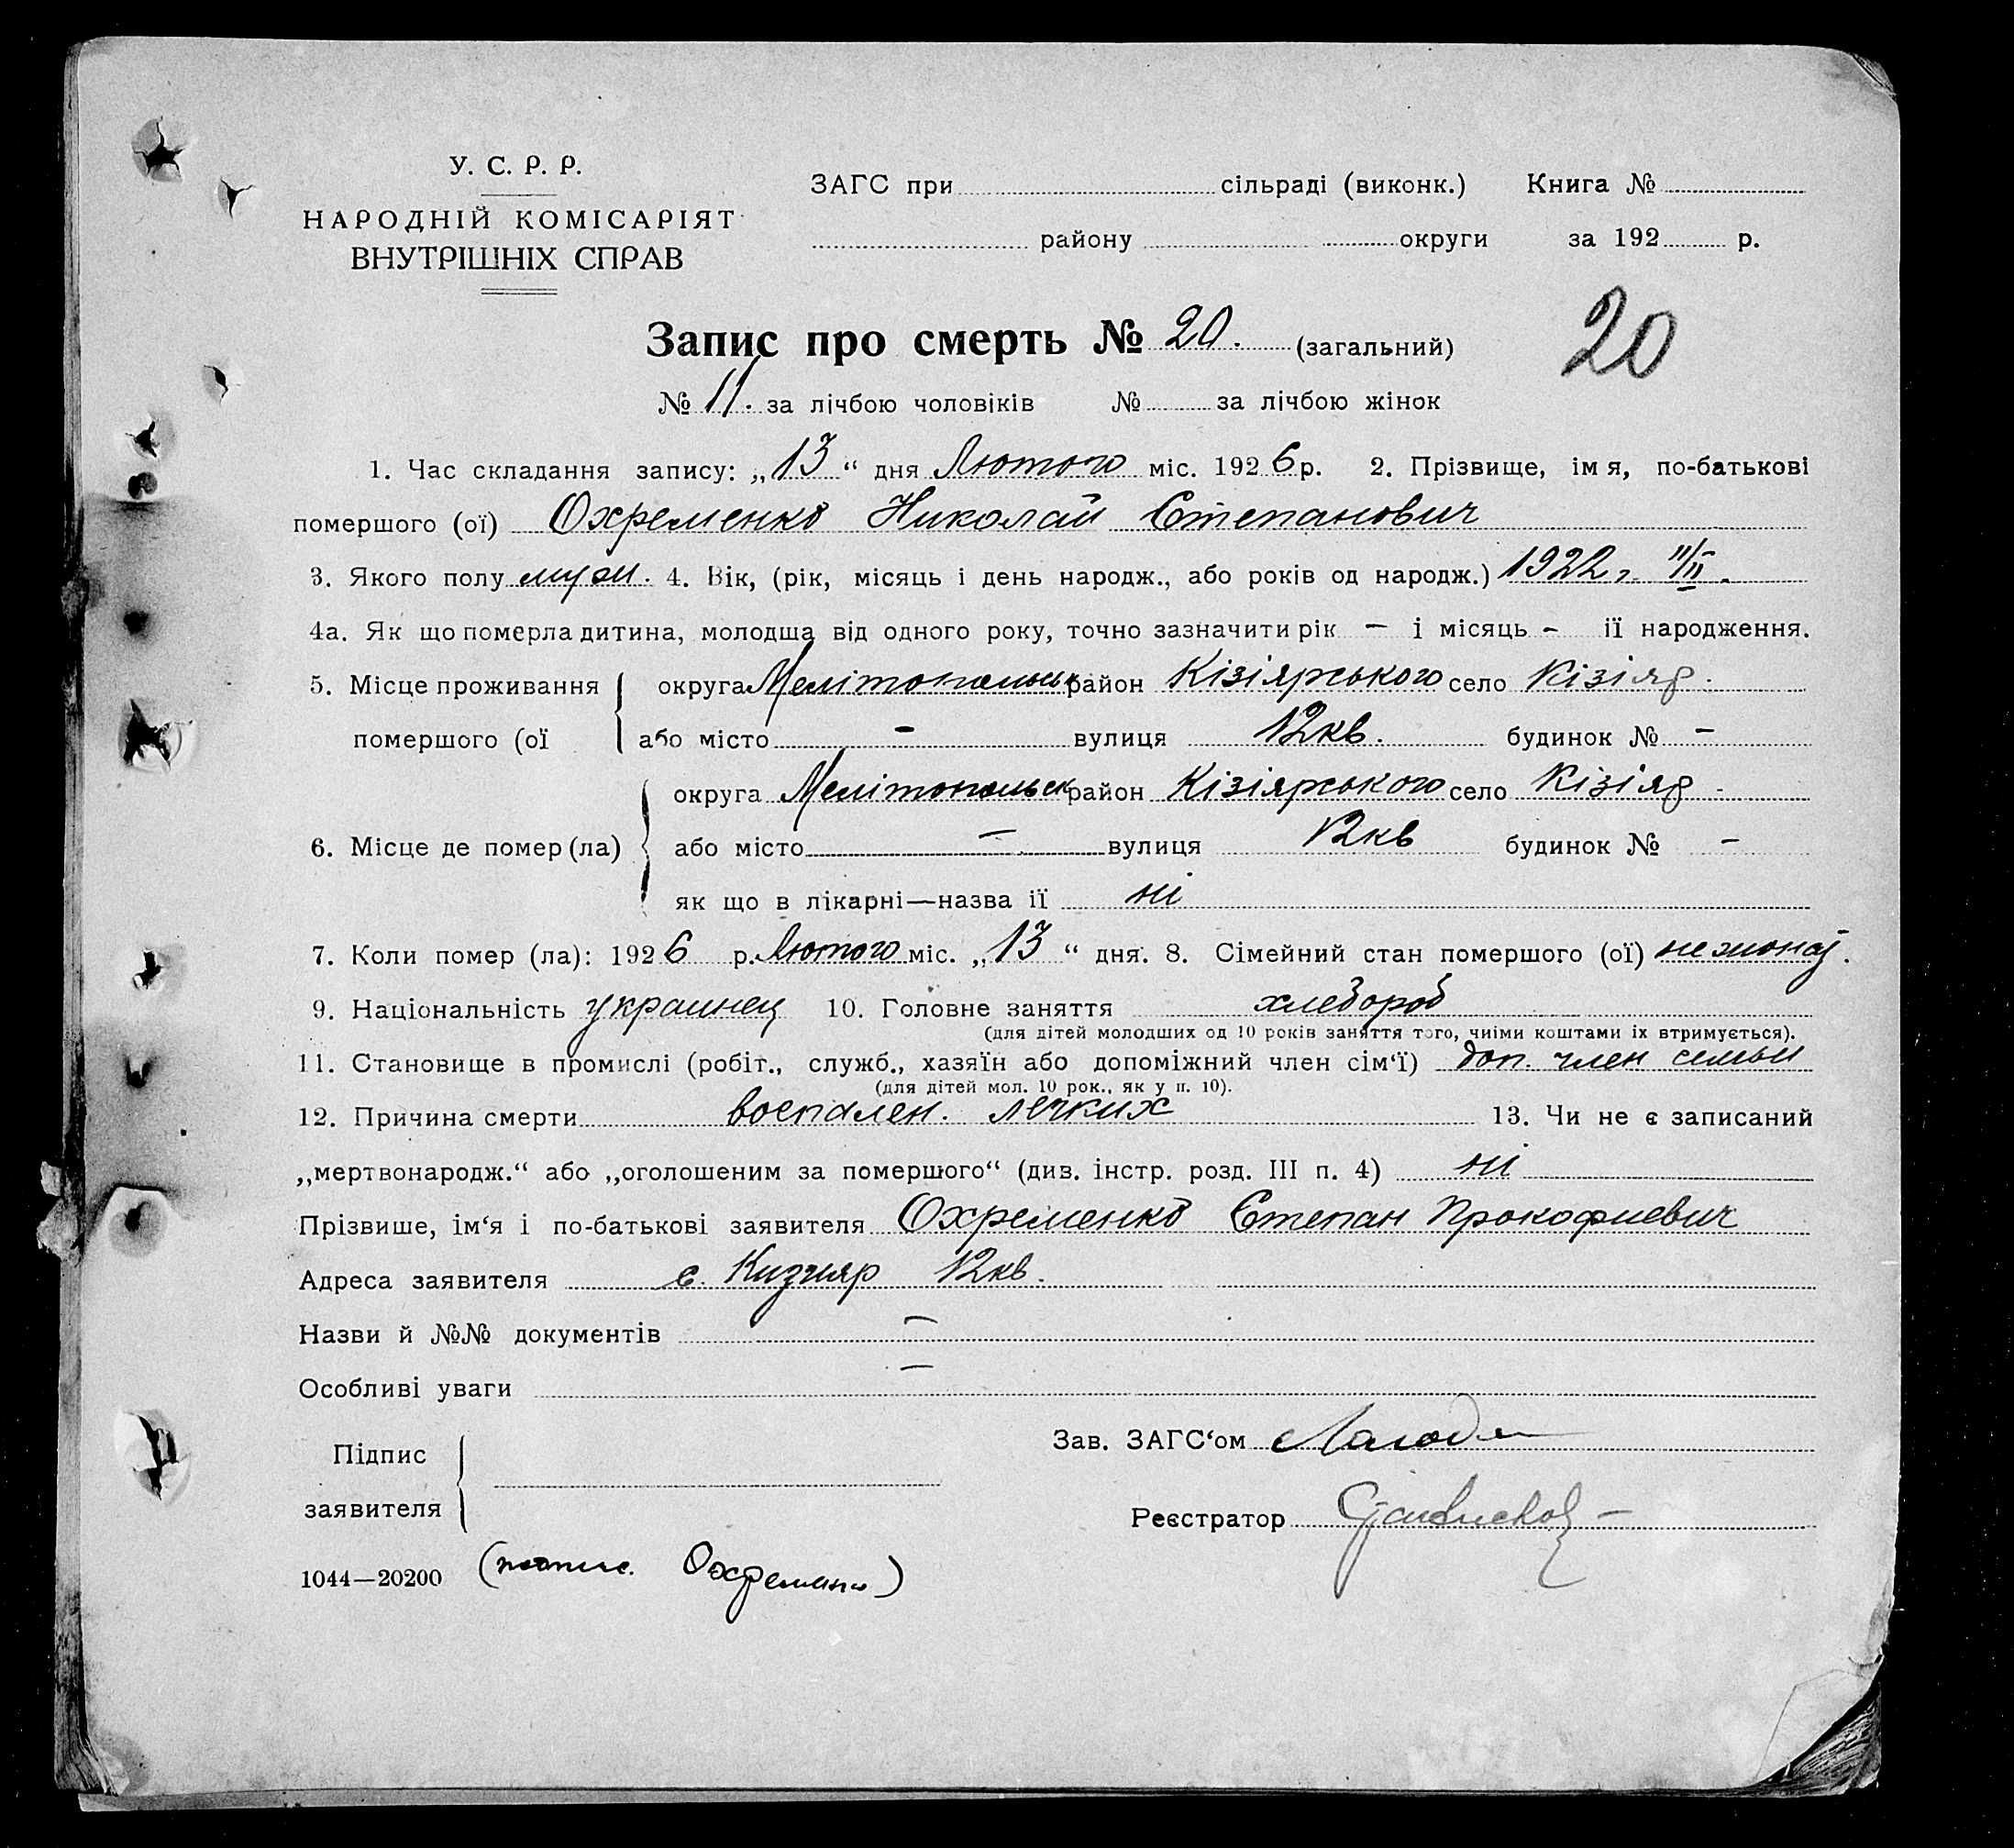 У. С. Р. Р.
НАРОДНІЙ КОМІСАРІЯТ
ВНУТРІШНІХ СПРАВ
ЗАГС при сільраді (виконк.) Книга №
району округи за 192 р.
Запис про смерть № 20. (загальний)
20
№ 11. за лічбою чоловіків № за лічбою жінок
1. Час складання запису: „13“ дня Лютого міс. 1926 р. 2. Прізвище, імя, по-батькові
помершого (ої) Охременко Николай Степанович
3. Якого полу муж. 4. Вік, (рік, місяць і день народж., або років од народж.) 1922 г. 11/II.
4а. Як що померла дитина, молодша від одного року, точно зазначити рік — і місяць - її народження.
5. Місце проживання округа Мелітопольськ район Кізіярського село Кізіяр.
помершого (ої або місто - вулиця 12кв. будинок № -
округа Мелітопольск район Кізіярського село Кізіяр -
6. Місце де помер (ла) або місто — вулиця 12кв будинок № -
як що в лікарні—назва її ні
7. Коли помер (ла): 1926 р. Лютого міс. „13“ дня. 8. Сімейний стан помершого (ої)
9. Національність украинец 10. Головне заняття хлебороб
(для дітей молодших од 10 років заняття того, чиїми коштами їх втримується).
11. Становище в промислі (робіт., служб., хазяїн або допоміжний член сім‘ї) доп. член семьи
(для дітей мол. 10 рок., як у п. 10).
12. Причина смерти воспален. легких 13. Чи не є записаний
„мертвонародж.“ або „оголошеним за помершого“ (див. інстр. розд. III п. 4) ні
Прізвише, ім‘я і по-батькові заявителя Охременко Степан Прокофиевич
Адреса заявителя с. Кизияр 12кв.
Назви й №№ документів —
Особливі уваги —
Підпис
заявителя
Зав. ЗАГС‘ом
Реєстратор
1044—20200 Охременко)